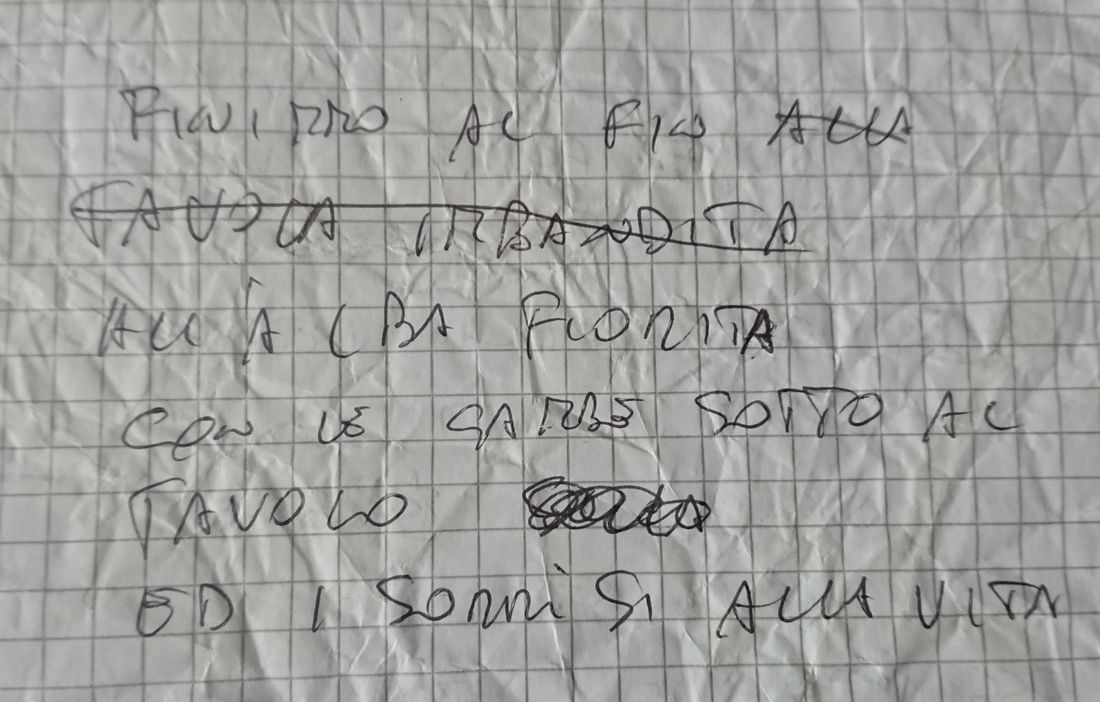 FINIMMO AL FIN ALLA
TAVOLA IMBANDITA
ALL'ALBA FIORITA
CON LE GAMBE SOTTO AL
TAVOLO
ED I SORRISI ALLA VITA